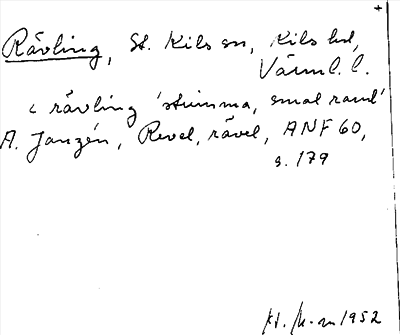 Rävling, St. Kils sn, Kils hd,
Värml. l.
< rävling 'strimma, smal rand'
A. Janzén, Revel, rävel, ANF 60,
s. 179
1952